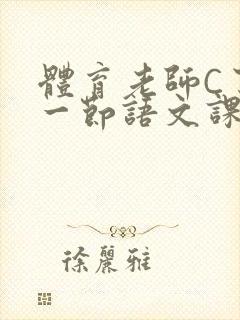 體育老師C
一節語文課
徐麗雅